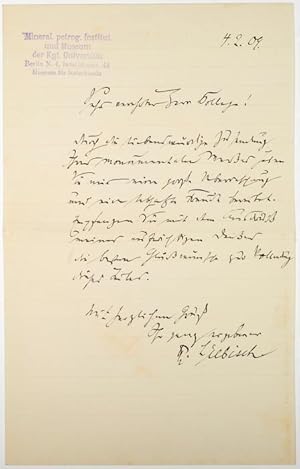 Mineral. petrog. Institut
und Museum
der Kgl. Universität
Berlin N. 4, Invalidenstr. 43
Museum für Naturkunde
4. 2. 09.
Sehr verehrter Herr Kollege!
Durch die liebenswürdige Zusendung
Ihres monumentalen Werkes haben
Sie mir eine große Ueberraschung
und eine lebhafte Freude bereitet.
Empfangen Sie mit dem Ausdruck
meines aufrichtigen Dankes
die besten Glückwünsche zur Vollendung
dieses
Mit herzlichem Gruß
Ihr ganz ergebener
Th. Liebisch